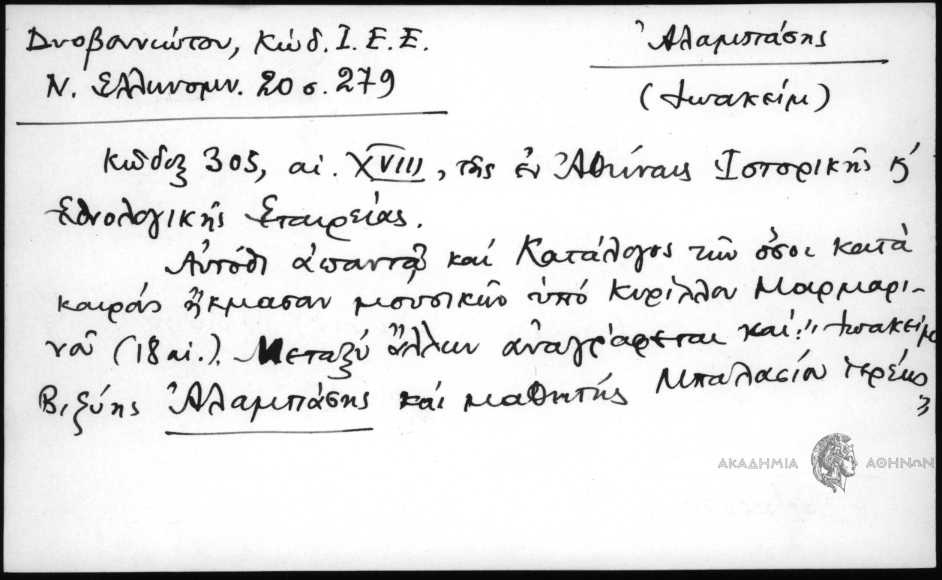 Δυοβουνιώτου, Κώδ. Ι. Ε. Ε.
Ν. Ελληνομν. 20 σ. 279
Ἀλαμπάσης
(Ἰωακείμ)
Κῶδιξ 305, αἰ. XVIII, τῆς ἐν Ἀθήναις Ἱστορικῆς κ'
Ἐθνολογικῆς Ἑταιρείας.
Αὐτόθι ἀπαντᾷ καί Κατάλογος τῶν ὅσοι κατά
καιρούς ἤκμασαν μουσικῶν ὑπό Κυρίλλου Μαρμαρι-
νοῦ (18 αἰ.). Μεταξύ ἄλλων ἀναγράφεται καί: "Ἰωακείμ
Βιζύης Ἀλαμπάσης καί μαθητής Μπαλασίου ἱερέως
ΑΚΑΔΗΜΙΑ ΑΘΗΝΩΝ